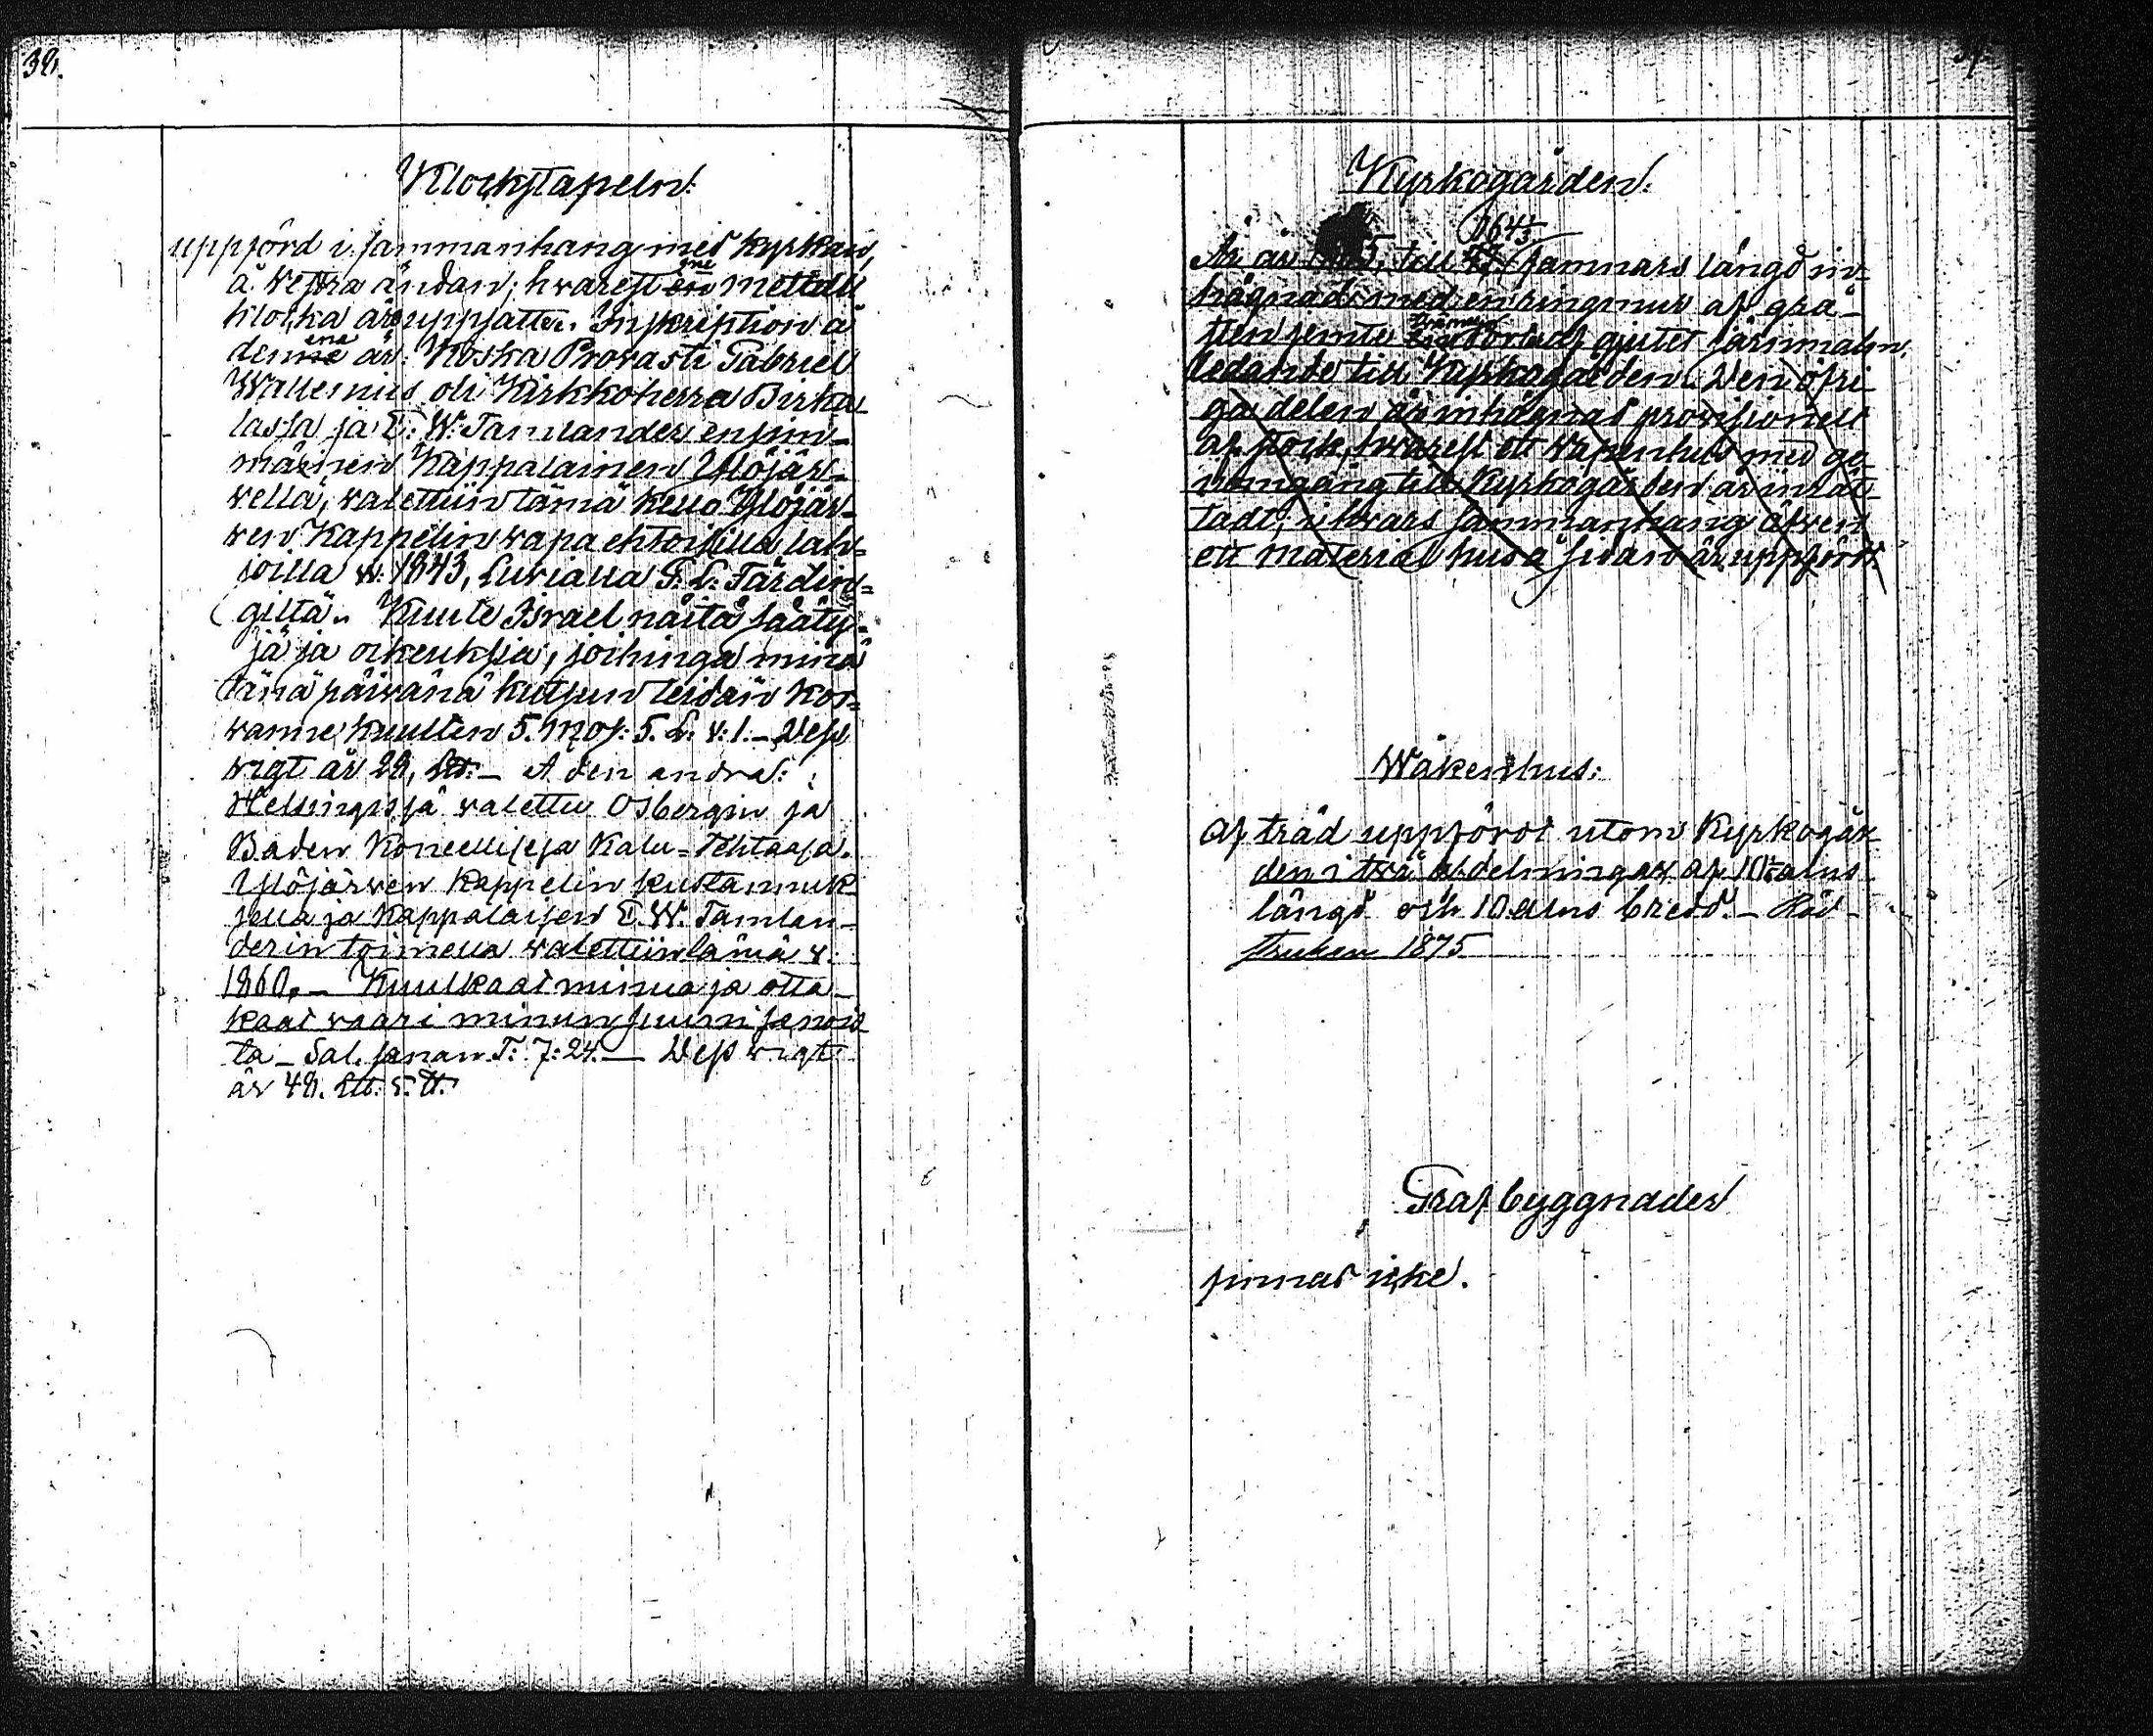 38.
Klockstapeln:
uppförd i sammanhang med kyrkan,
å vestra ändan; hvarest tvenne metall
klocka äro uppsatte. Inskription å
dena ena är: Koska Provasti Gabriel
Wallenius oli Kirkkoherra Birka-
lassa ja E. W. Tamlander ensim-
mäinen Kappalainen Ylöjär-
vellä, valettiin tämä kello Ylöjär-
ven Kappelin vapaehtoisilla lah-
joilla v. 1843, Luvialla G. L. Tärding-
giltä. Kuule Israel näitä sääty-
jä ja oikeuksia, joihinga minä
tänä päivänä kutsun teidän kor-
vanne kuullen 5. Mos. 5. L. v. 1. – Dess
vigt är 28. L℔. – Å den andra:
Helsingissä valettu Osbergin ja
Baden Koneellisesa Kalu-Tehtaasa.
Ylöjärven Kappelin kustannuk-
sella ja Kappalaisen E. W. Tamlan-
derin toimella valettiin tämä v.
1860. – Kuulkaat minua ja otta-
kaat vaari minun suuni sanois-
ta – Sal. sanan. L. 7: 24. – Dess vigt
är 48. L℔. 5. ℔.
Kyrkogården:
1643
Är år 5, till famnars längd in-
hägnad med en ringmur af grå-
sten jemte port af gjutet järnmalm,
ledande till Kyrkogården. Den öfri-
ga delen är inhägnad provisionelt
af stock, hvarest ett vapenhus med ge-
nomgång till Kyrkogården är inrät-
tadt, i hvars sammanhang äfven
ett material hus å sidan är uppfördt
Wåkenhus:
Af träd uppfördt utom Kyrkogår-
den i två afdelningar af 10½ alns
längd och 10 alns bredd. – Röd-
struken 1875
Grafbyggnader
finnas icke.